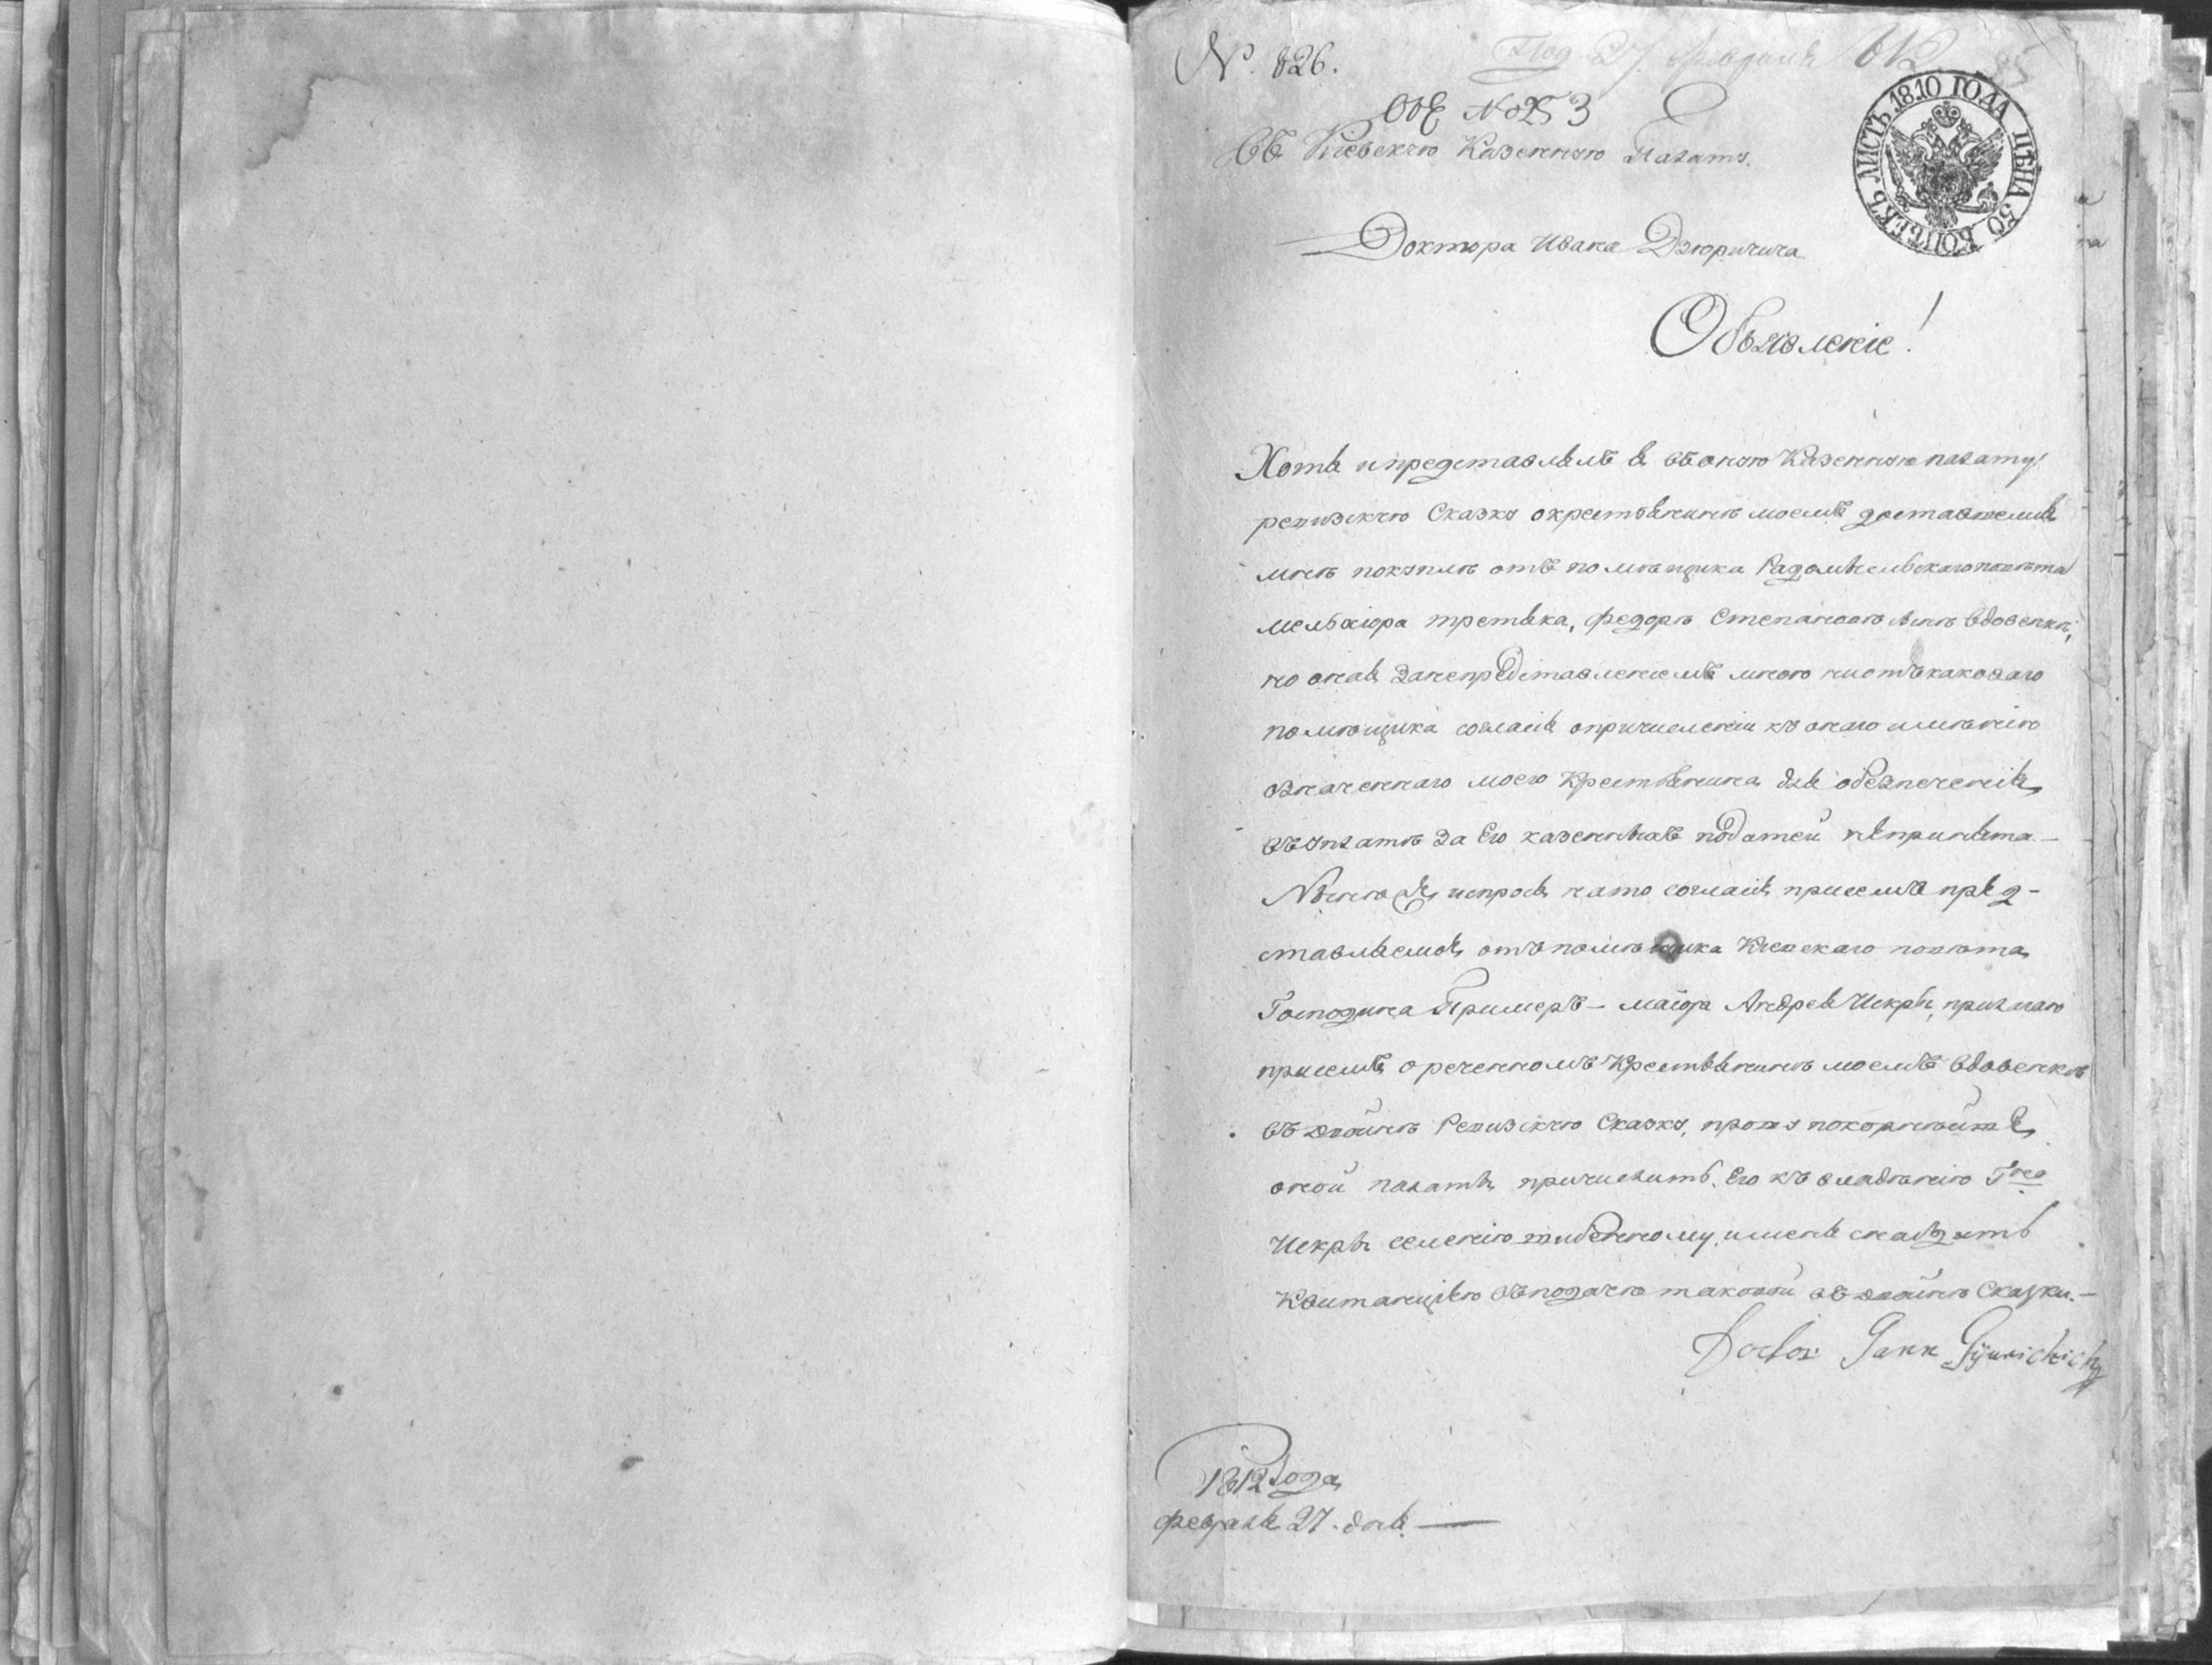 №. 826.
Под. 27. февраля 812
ЛИСТЪ 1810 ГОДА ЦѢНА 50 КОПѢЕКЪ
Въ Кіевскую Казенную Палату.
Доктора Ивана Дзюричича
Объявленіе!
Хотя и представлялъ я въ оную Казенную палату
ревизскую Сказку о крестьянинѣ моемъ доставшемся
мнѣ покупкѣ отъ помѣщика Радомысльскаго повѣта
Мельхіора третяка, федорѣ Степановѣ сынѣ Вдовенкѣ,
но оная за непредставленіемъ мною ни отъ каковаго
помѣщика согласія о причисленіи къ онаго имѣнію
означеннаго моего Крестьянина для обезпеченія
въ уплатѣ за Его казенныхъ податей не принята. —
Нынѣ я, испрося на то согласія при семъ пред-
ставляемой отъ помѣщика Кіевскаго повѣта
Господина Примеръ — маіора Андрея Искры, прилагаю
при семъ о реченномъ Крестьянинѣ моемъ Вдовенкѣ
въ двойнѣ Ревизскую Сказку, прошу покорнѣйше
оной палаты причислить Его къ владѣнію Гна
Искры селенію и меня снабдить
Квитанціею въ подачѣ таковой въ двойнѣ Сказки. —
Doctor Gyurichich
1812 года
февраля 27. дня. —